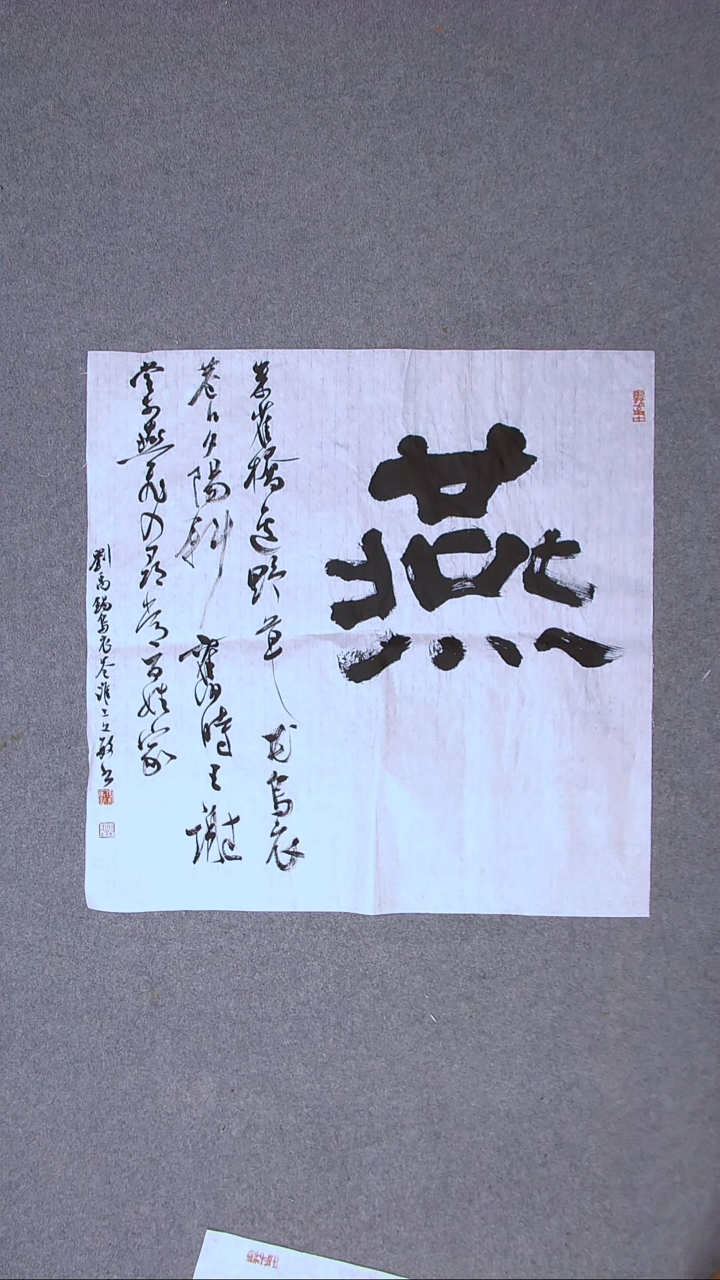 燕
朱雀橋邊野草花烏衣
巷口夕陽斜舊時王謝
堂前燕飛入尋常百姓家
劉禹錫烏衣巷